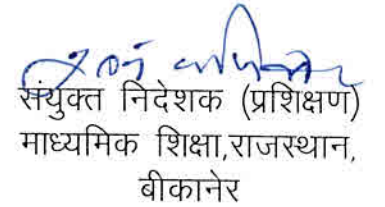 संयुक्त निदेशक (प्रशिक्षण)
माध्यमिक शिक्षा,राजस्थान,
बीकानेर